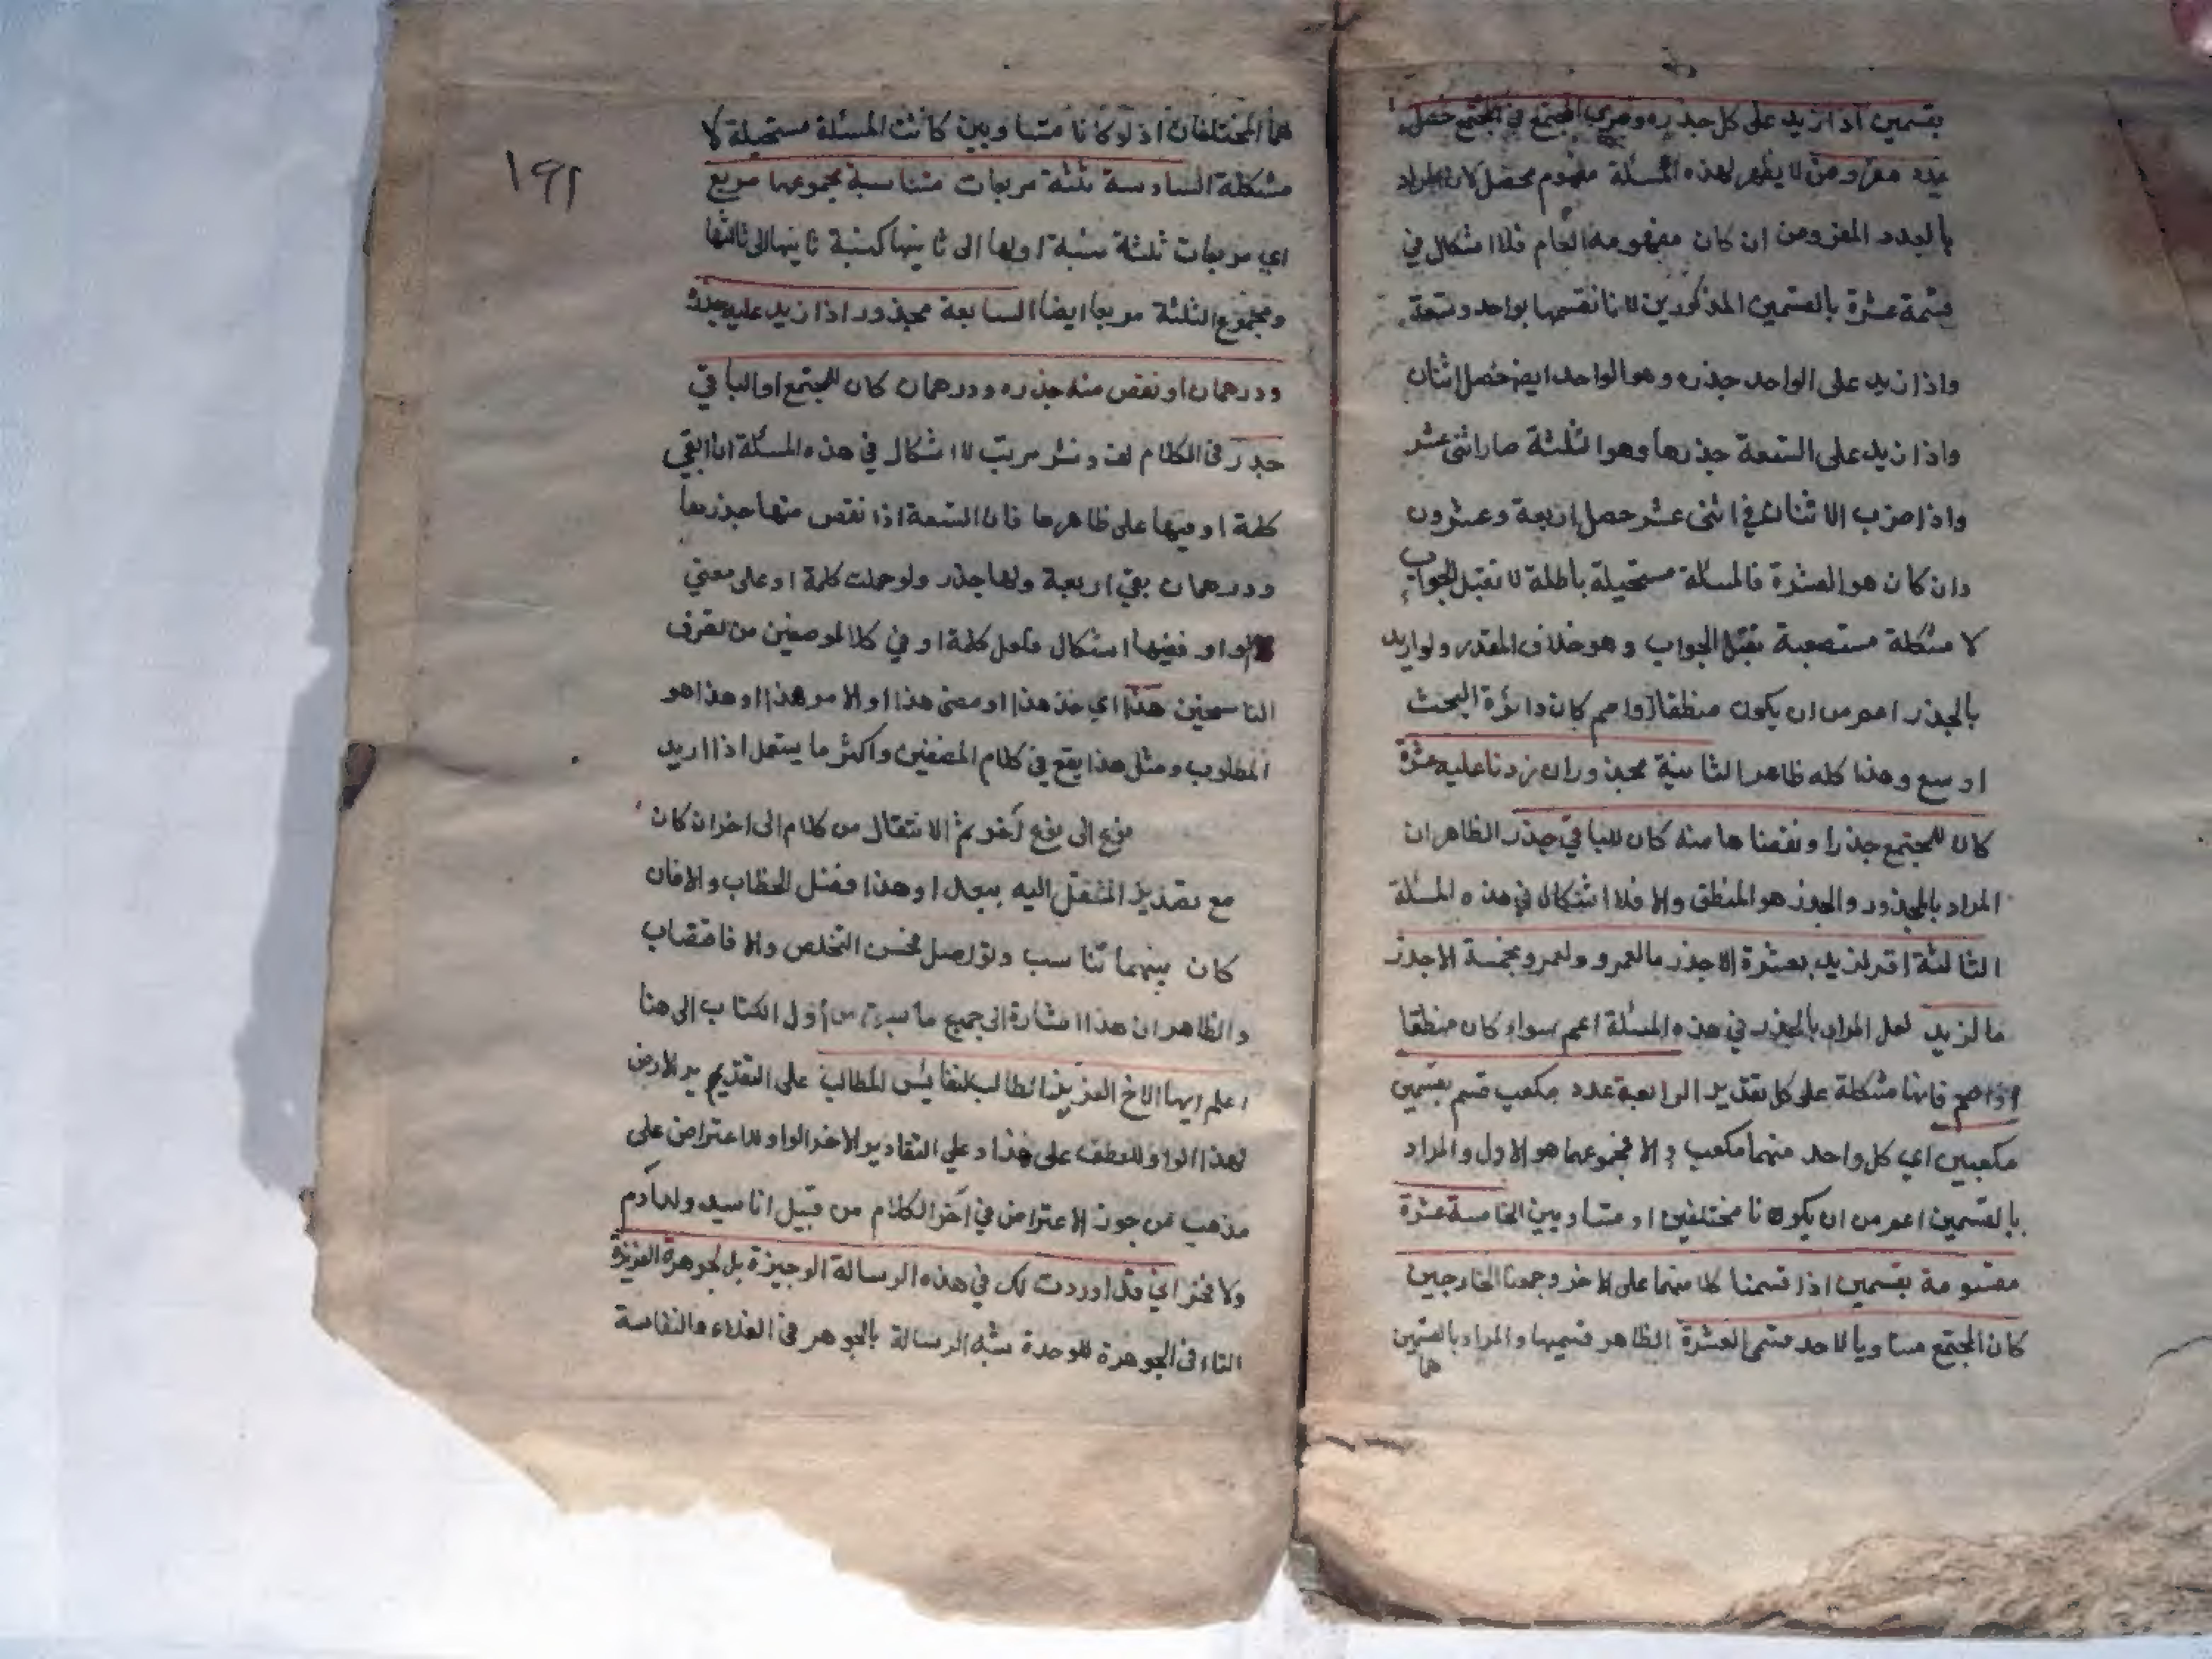 بقسمين اذا زيد على كل جذره وضرب المجتمع في المجتمع حصل
عدد مفروض لا يظهر لهذه المسئلة مفهوم محصل لان المراد
بالعدد المفروض ان كان مفهومه العام فلا اشكال في
قسمة عشرة بالقسمين المذكورين لانا نقسمها بواحد وتسعة
واذا زيد على الواحد جذره وهو الواحد ايض حصل اثنان
واذا زيد على التسعة جذرها وهو الثلثة صار اثنى عشر
واذا ضرب الاثنان في اثنى عشر حصل اربعة وعشرون
وان كان هو العشرة فالمسئلة مستحيلة باطلة لا تقبل الجواب
لا مشكلة مستصعبة تقبل الجواب وهو خلاف المقدر ولو اريد
بالجذر اعم من ان يكون منطقا او اصم كان دائرة البحث
اوسع وهذا كله ظاهر الثانية مجذور ان زدنا عليه عشرة
كان للمجتمع جذر او نقصناها منه كان للباقي جذر الظاهر ان
المراد بالمجذور والجذر هو المنطق والا فلا اشكال في هذه المسئلة
الثالثة اقر لزيد بعشرة الا جذر ما لعمرو ولعمرو بخمسة الا جذر
ما لزيد لعل المراد بالجذر في هذه المسئلة اعم سواء كان منطقا
او اصم فانها مشكلة على كل تقدير الرابعة عدد مكعب قسم بقسمين
مكعبين اي كل واحد منهما مكعب والا فمجموعهما هو الاول والمراد
بالقسمين اعم من ان يكونا مختلفين او متساويين الخامسة عشرة
مقسومة بقسمين اذا قسمنا كلا منهما على الاخر وجمعنا الخارجين
كان المجتمع مساويا لاحد قسمى العشرة الظاهر قسميها والمراد بالقسمين
هما
١٩١
هما المختلفان اذ لو كانا متساويين كانت المسئلة مستحيلة لا
مشكلة السادسة ثلثة مربعات متناسبة مجموعها مربع
اي مربعات ثلثة نسبة اولها الى ثانيها كنسبة ثانيها الى ثالثها
ومجموع الثلثة مربعا ايضا السابعة مجذور اذا زيد عليه جذره
ودرهمان او نقص منه جذره ودرهمان كان للمجتمع او الباقي
جذر في الكلام لف ونشر مرتب لا اشكال في هذه المسئلة ان ابقي
كلمة او فيها على ظاهرها فان التسعة اذا نقص منها جذرها
ودرهمان بقي اربعة ولها جذر ولو حملت كلمة او على معني
الواو ففيها اشكال فلعل كلمة او في كلا الموضعين من تصرف
الناسخين هذا اي خذ هذا او مضى هذا او الامر هذا او هذا هو
المطلوب ومثل هذا يقع في كلام المصنفين واكثر ما يستعمل اذا اريد
نوع الى نوع آخر ثم الانتقال من كلام الى اخر ان كان
مع تقدير المنتقل اليه ببعد او هذا ففصل الخطاب والا فان
كان بينهما تناسب وتواصل فحسن التخلص والا فاقتضاب
والظاهر ان هذا اشارة الى جميع ما سبق من اول الكتاب الى هنا
اعلم ايها الاخ العزيز الطالب لنفايس المطالب على التقديم
لهذا الواو للعطف على هذا وعلى التقادير الاخر الواو للاعتراض على
مذهب من جوز الاعتراض في آخر الكلام من قبيل انا سيد ولد آدم
ولا فخر اني قد اوردت لك في هذه الرسالة الوجيزة بل الجوهرة العزيزة
التاء في الجوهرة للوحدة شبه الرسالة بالجوهر في الغلاء والنفاسة